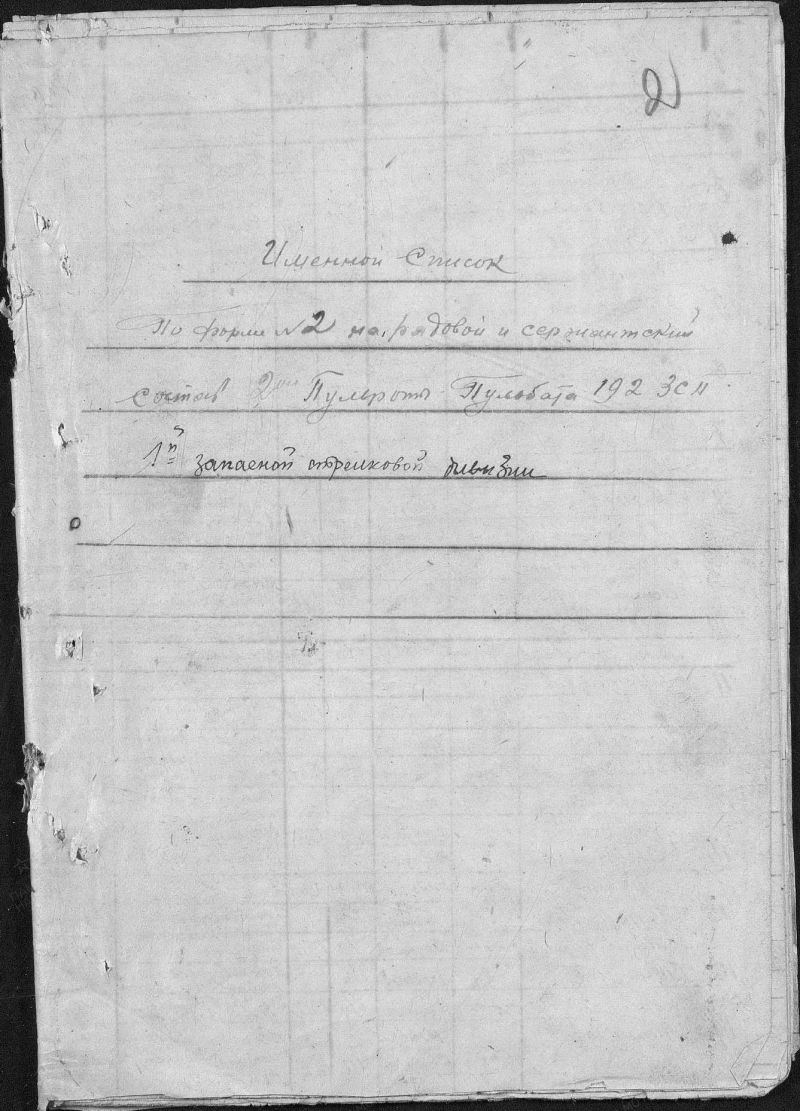 2
Именной Список
По форме №2 на рядовой и сержантский
состав 2ой Пулероты Пульбата 192 ЗСП
1й запасной стрелковой дивизии